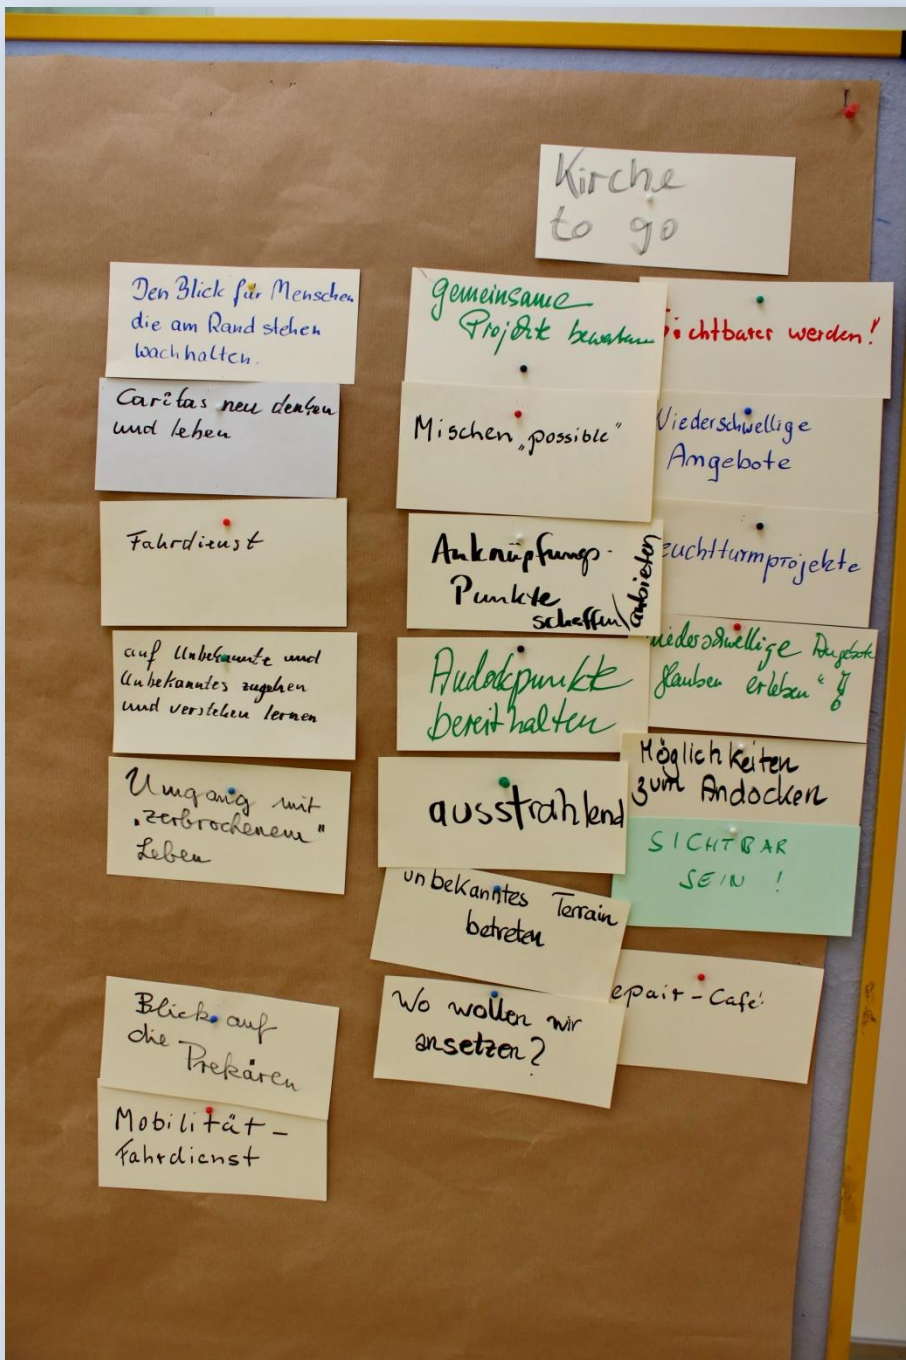 Kirche
to go
Den Blick für Menschen
die am Rand stehen
wachhalten.
Caritas neu denken
und leben
Fahrdienst
auf Unbekannte und
Unbekanntes zugehen
und verstehen lernen
Umgang mit
"zerbrochenem"
Leben
Blick auf
die Prekären
Mobilität-
Fahrdienst
Gemeinsame
Projekte
Mischen "possible"
Anknüpfungs-
Punkte
schaffen/anbieten
Andockpunkte
bereithalten
ausstrahlend
unbekanntes Terrain
betreten
Wo wollen wir
ansetzen?
Sichtbarer werden!
Niederschwellige
Angebote
euchtturmprojekte
niederschwellige Angebote
glauben erleben" !
Möglichkeiten
zum Andocken
SICHTBAR
SEIN !
epair-Café!